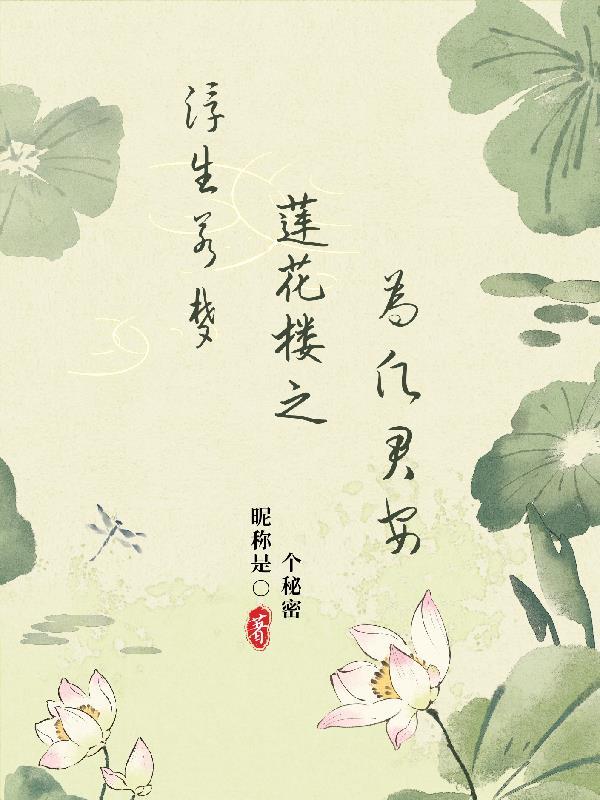 浮生若梦
莲花楼之
为君安
昵称是〇
个秘密
著